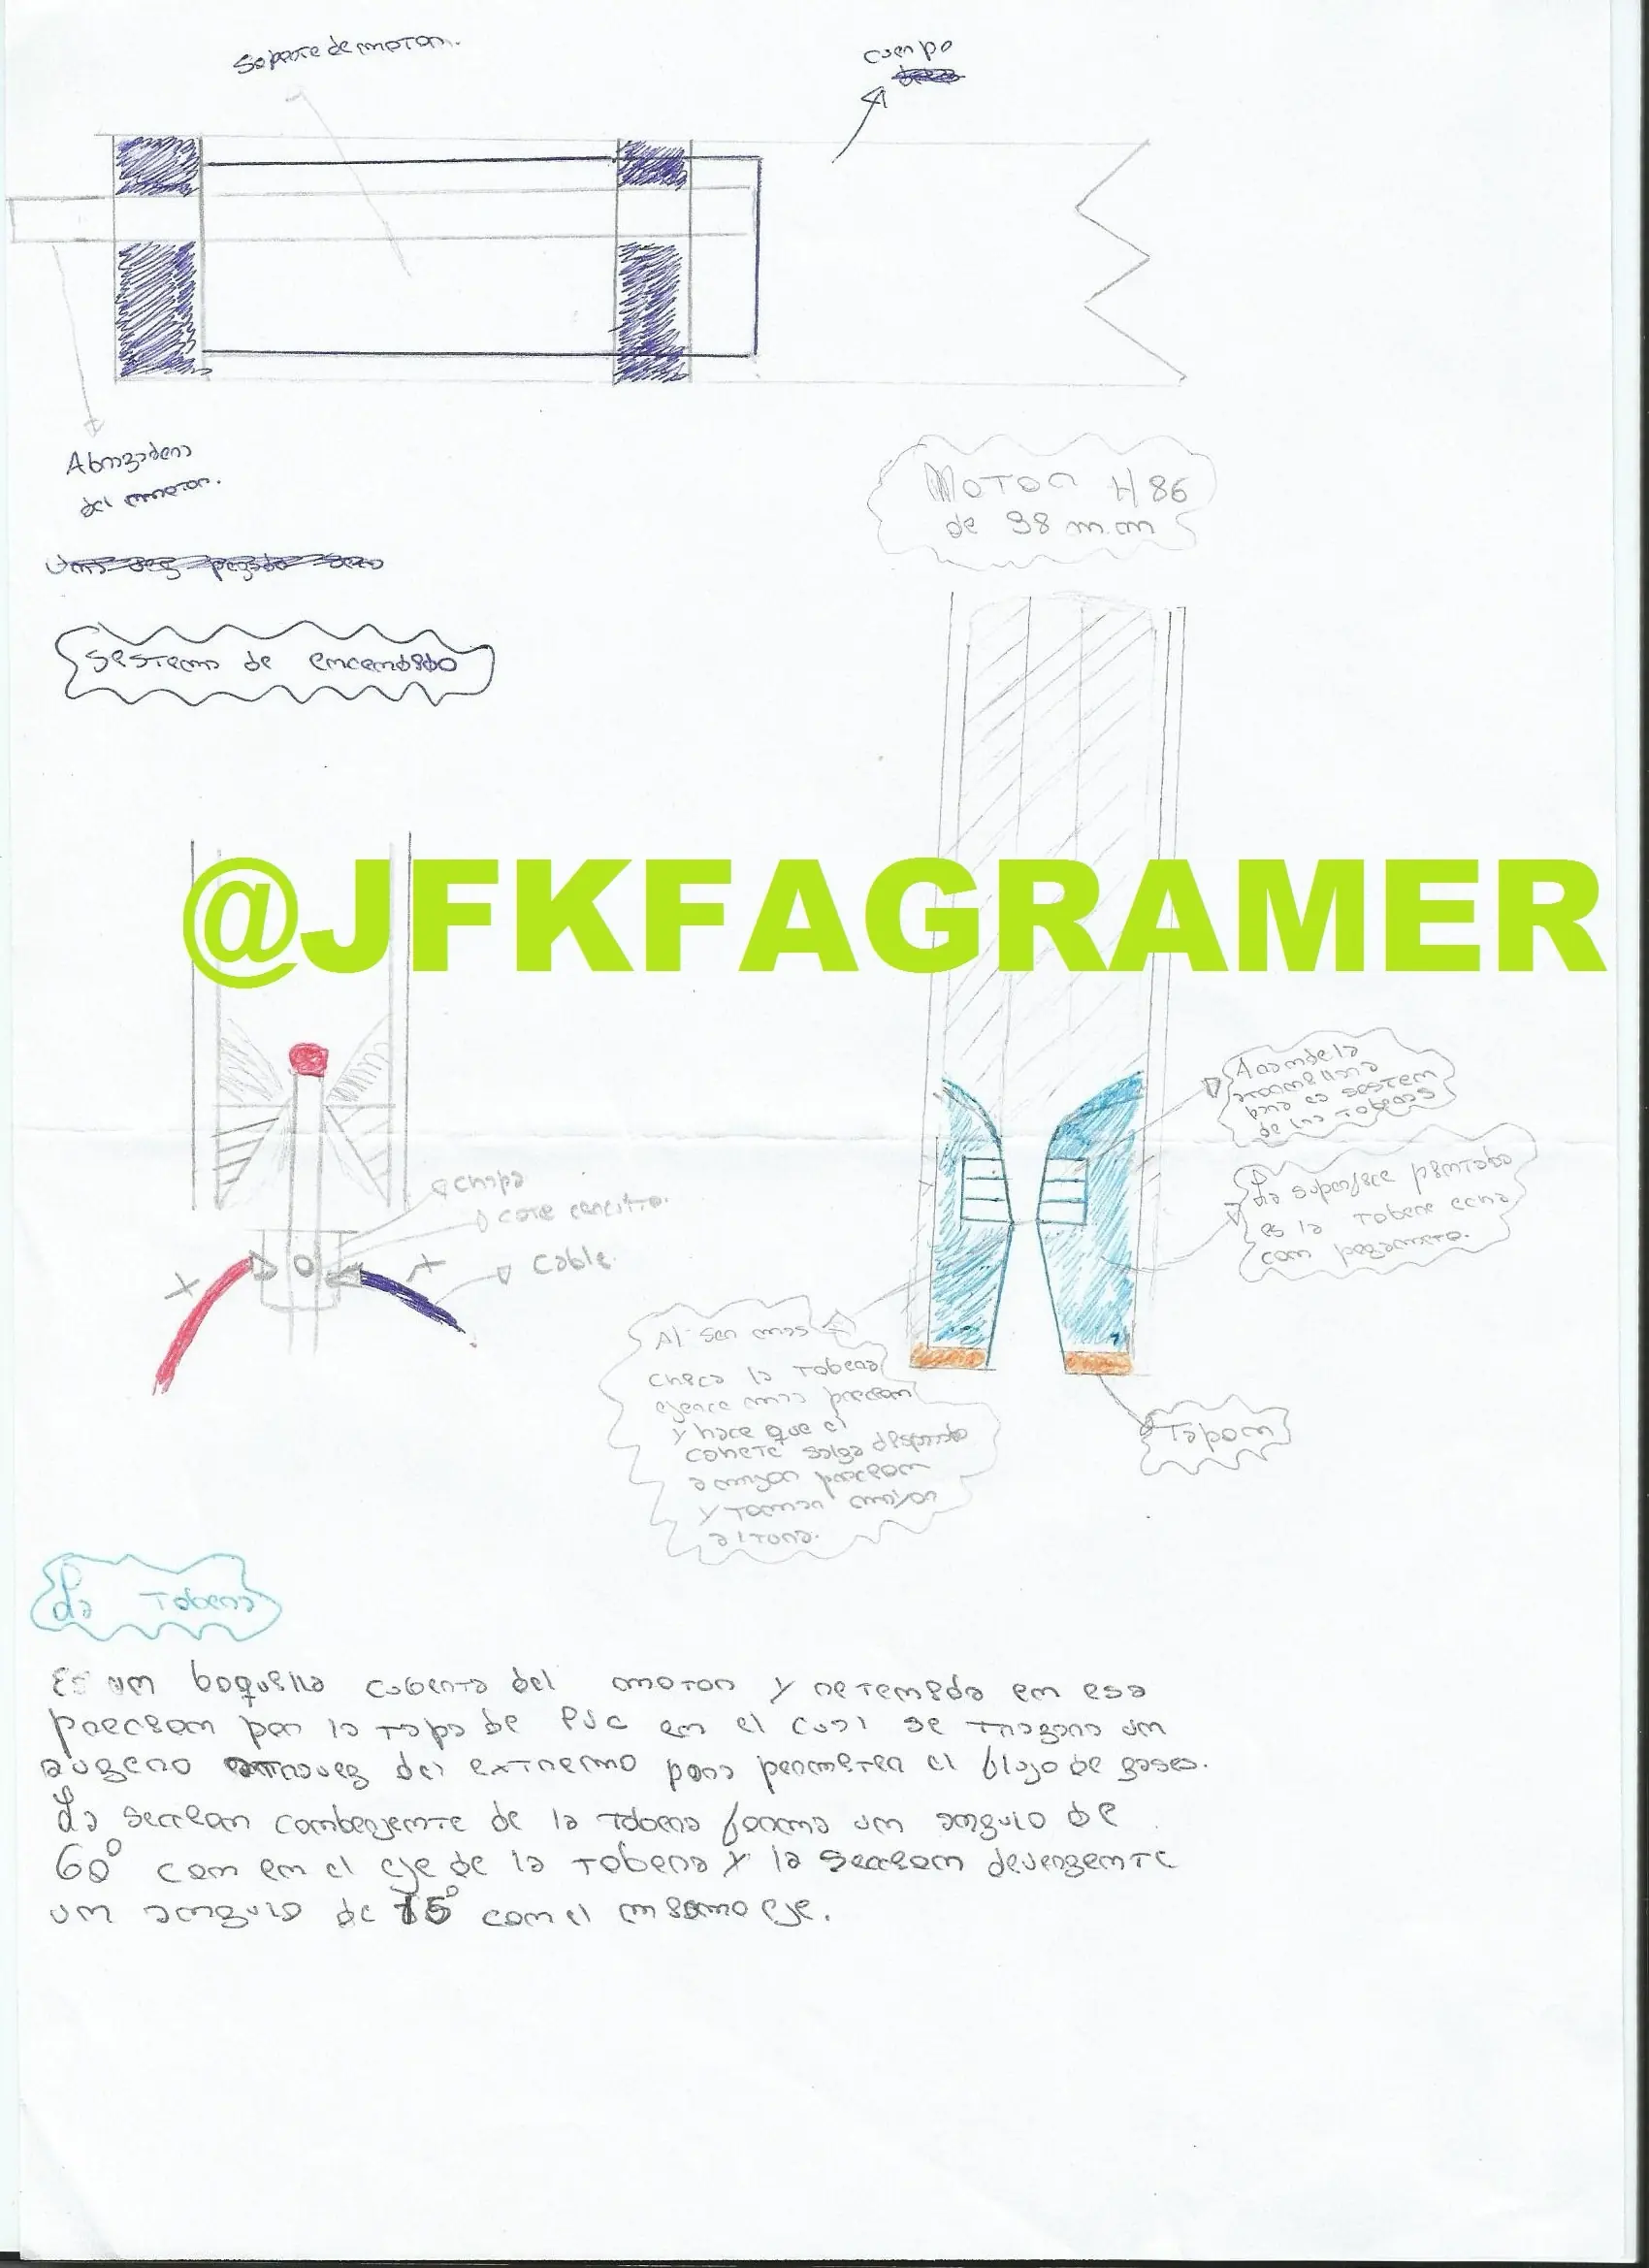 Soporte de motor.
cuerpo
Abrazadera
del motor.
Motor H86
de 38 m.m
Sistema de encendido
@JFKFAGRAMER
Arandela
atornillada
para el sistem
de las toberas
La superfice pintada
es la tobera echa
con pegamento.
chispa
corte circuito.
Cable.
Al ser mas
chica la tobera
ejerce mas precion
y hace que el
cohete salga disparado
a mayor precion
y tomar mayor
altura.
Tapon
La Tobera
Es un boquilla cubierta del motor y retenida en esa
precion por la tapa de PVC en el cual se tragara un
augero atravez del extremo para permitir el flujo de gases.
La seccion combergente de la tobera forma un angulo de
60° con en el eje de la tobera y la seccion devergente
un angulo de 15° con el mismo eje.